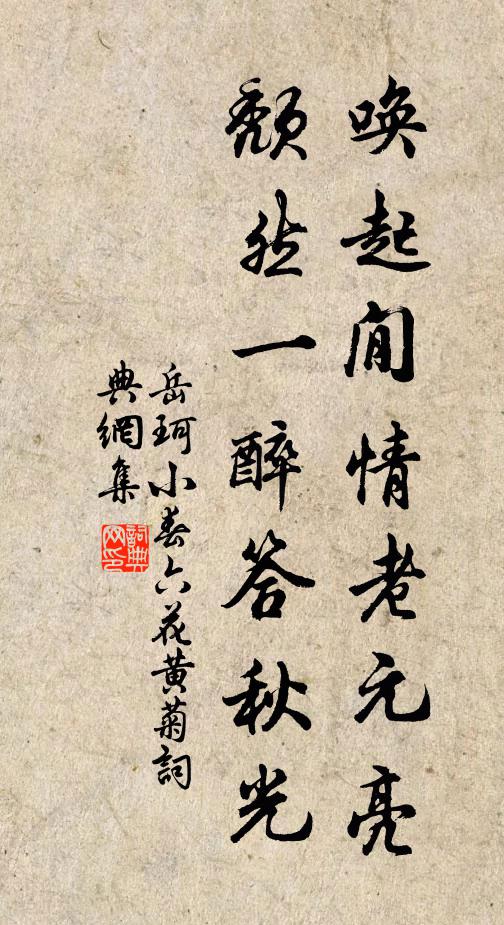 唤起閒情老元亮
頹然一醉答秋光
岳珂小春六花黄菊詞
典網集
詞典
网印